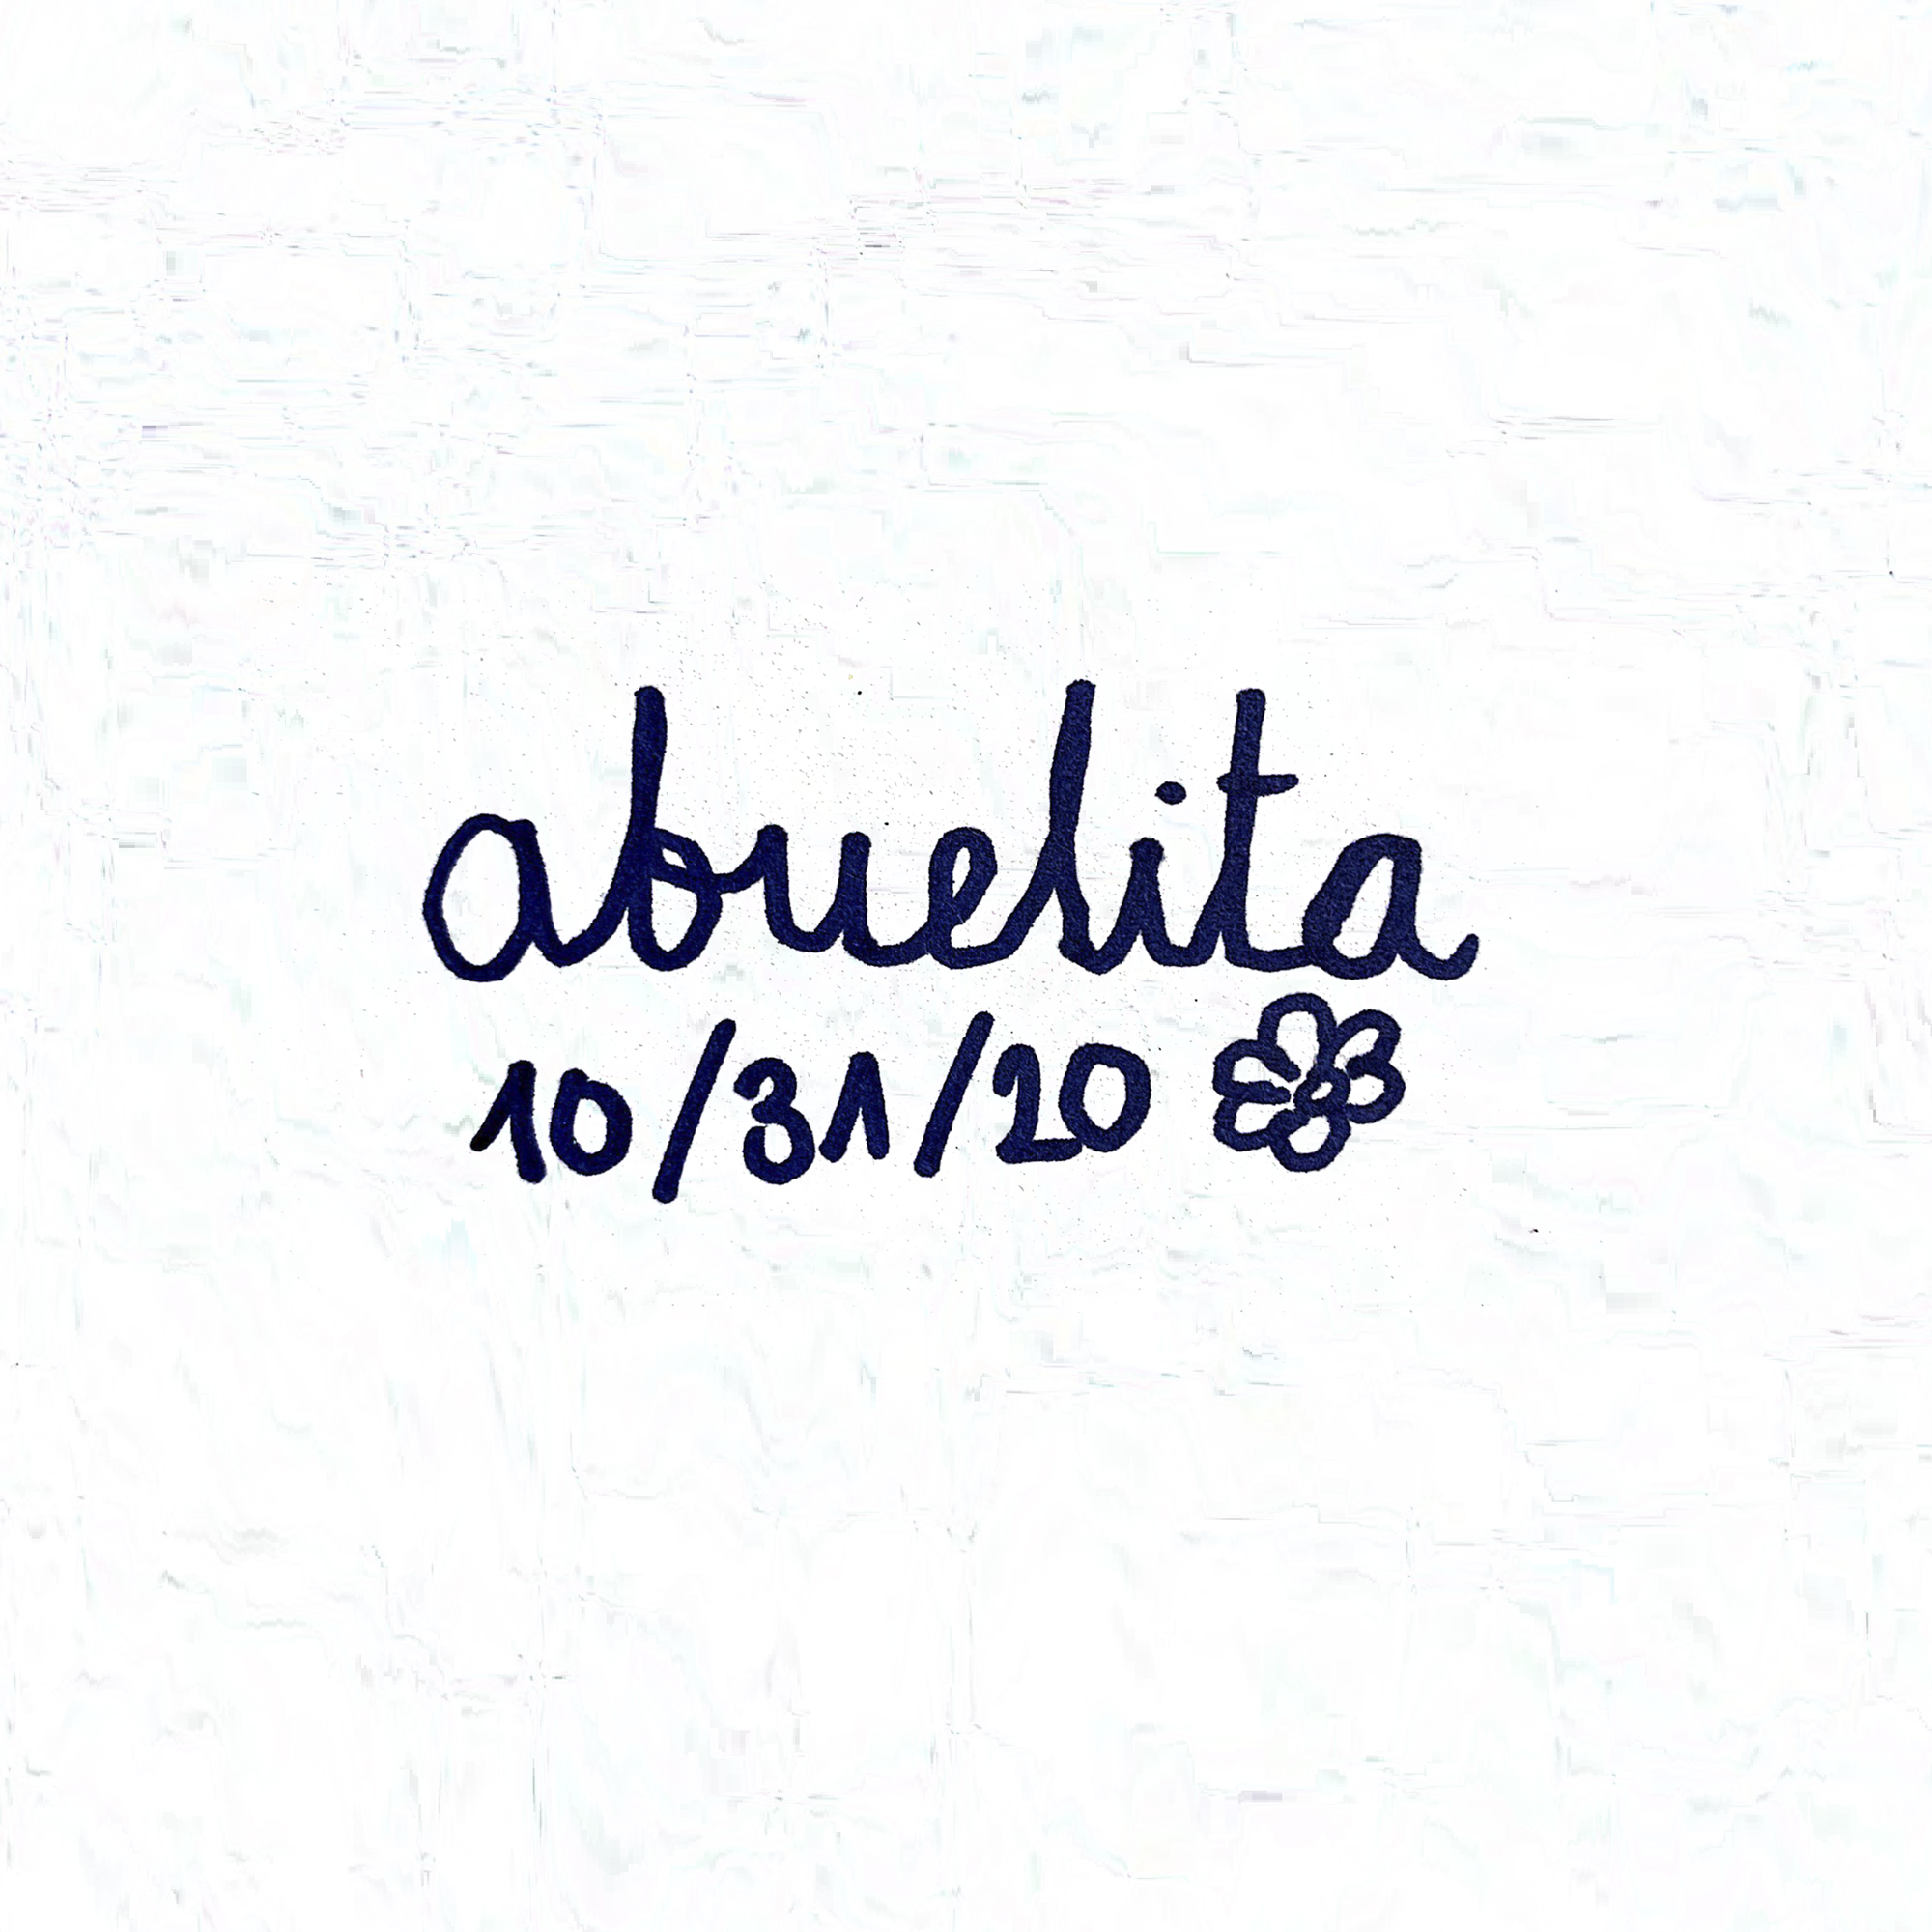 abuelita
10/31/20